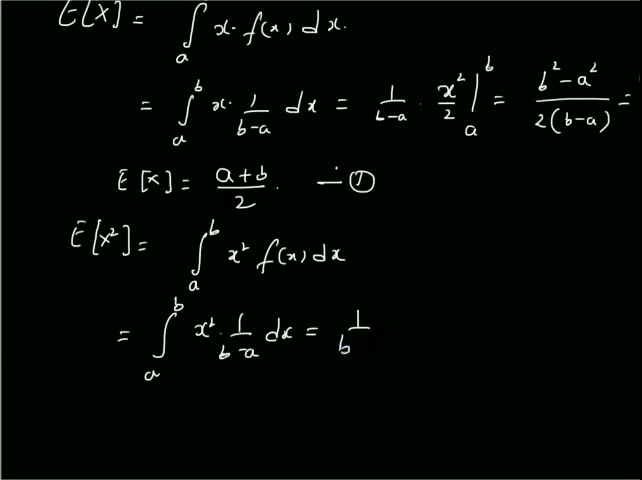 E[X] = ∫ₐ x. f(x) dx.
= ∫ₐᵇ x. 1/(b-a) dx = 1/(b-a) . x²/2 |ₐᵇ = (b²-a²)/(2(b-a)) =
E[X] = (a+b)/2. — ①
E[X²] = ∫ₐᵇ x² f(x) dx
= ∫ₐᵇ x². 1/(b-a) dx = 1/b